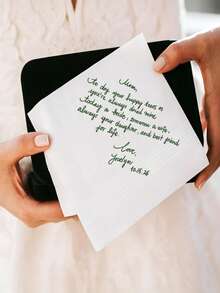 Mom,
to dry your happy tears as
you've always dried mine
today a bride, tomorrow a wife,
always your daughter, and best friend
for life.
Love,
Jocelyn
10.15.26